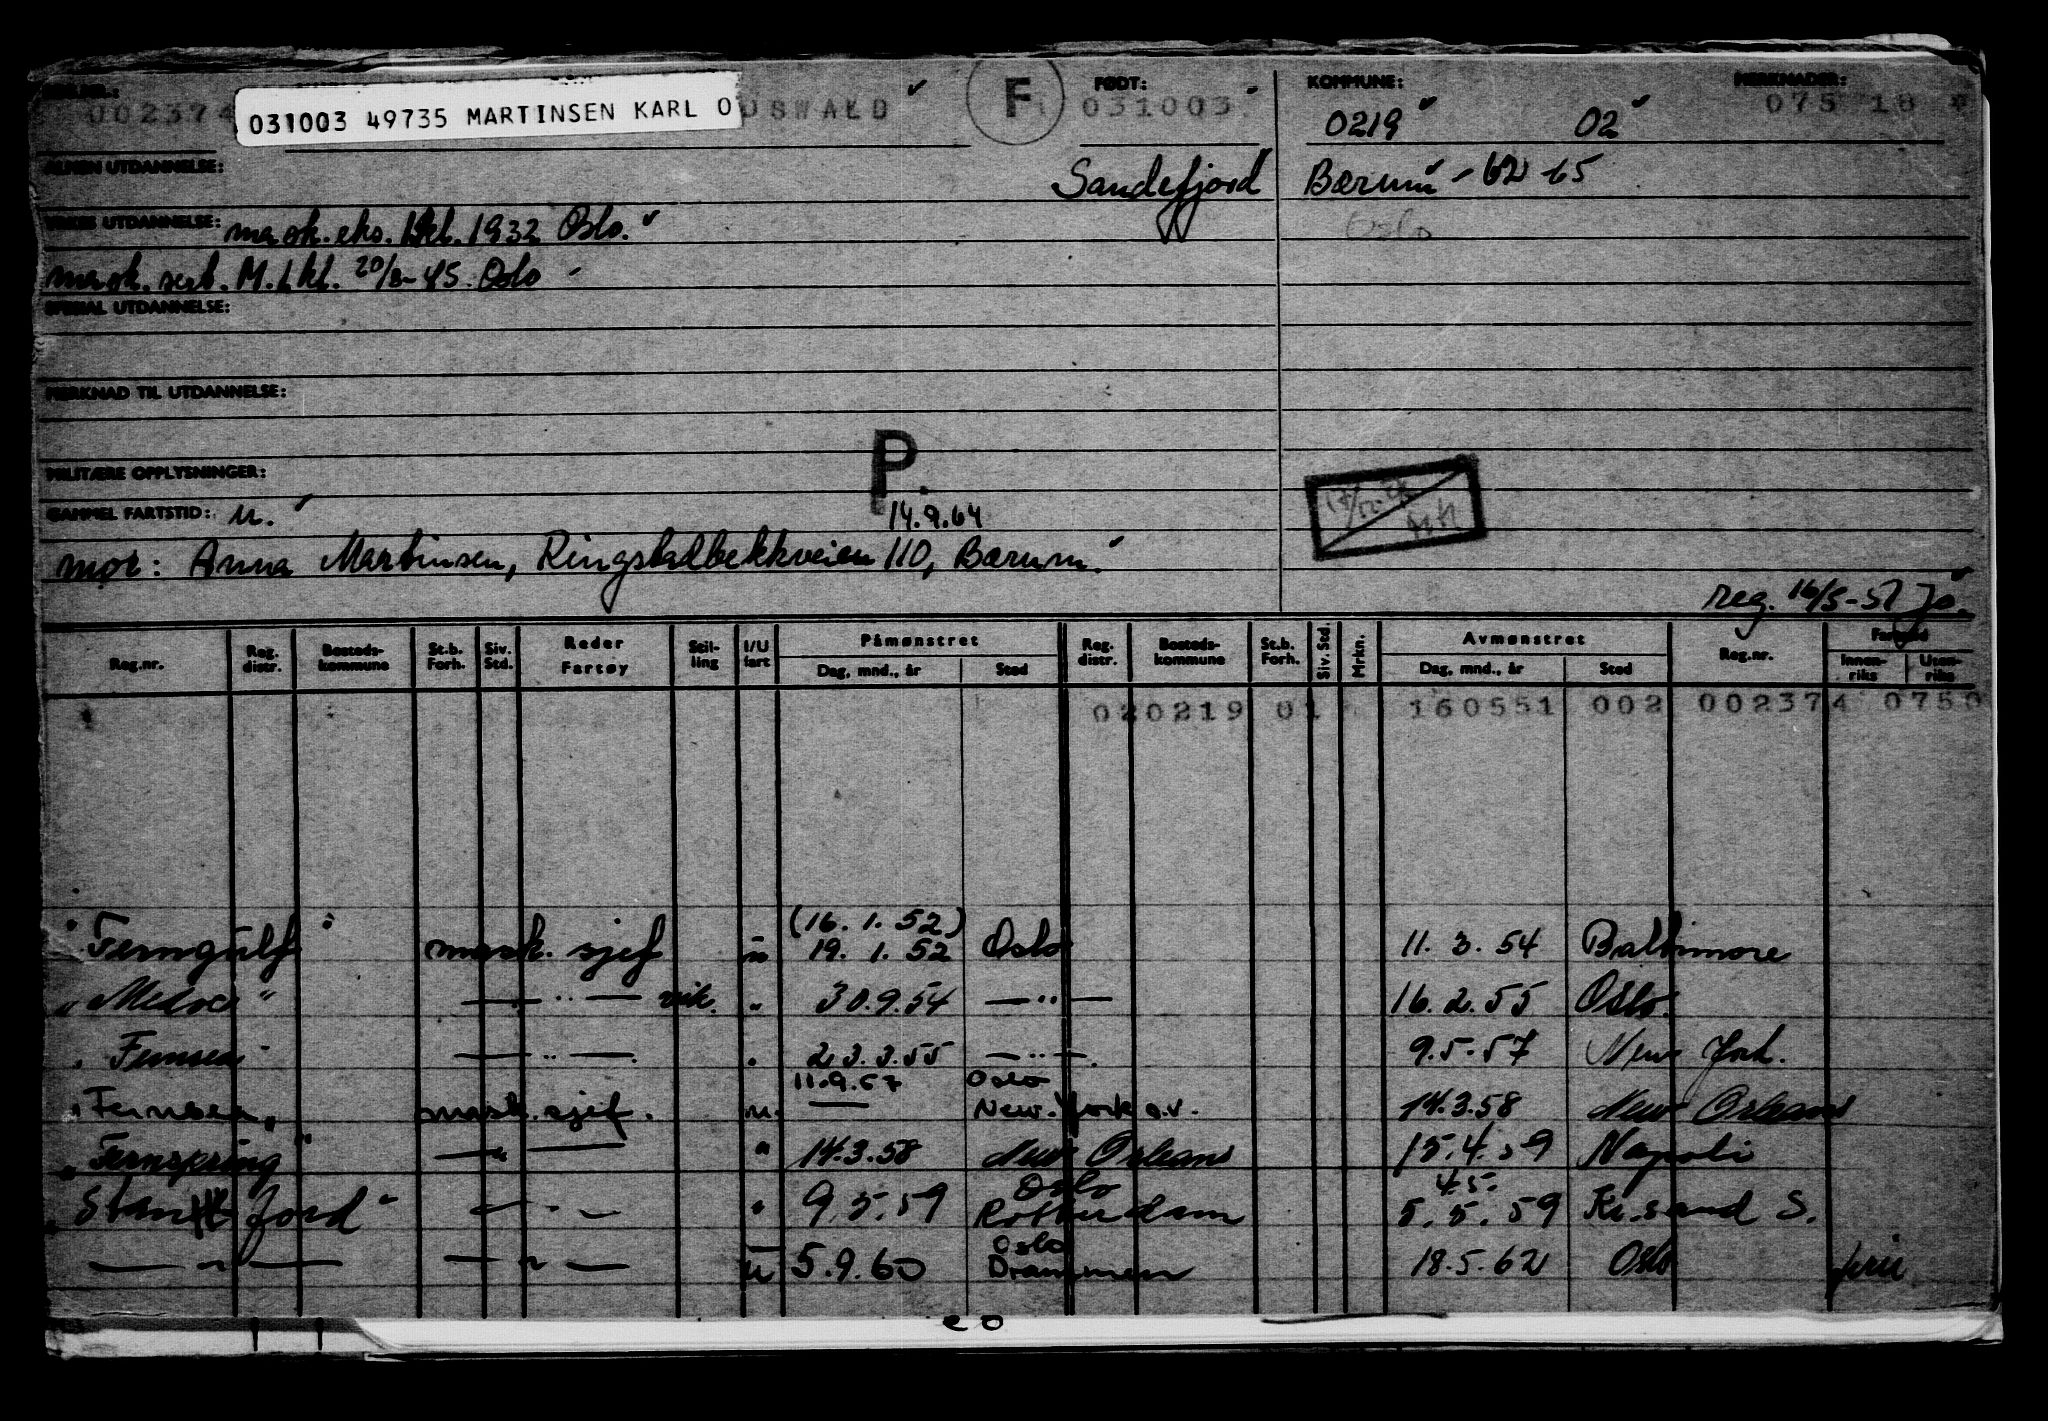 002374 031003 49735 MARTINSEN KARL O USWALD F FØDT: 031003 KOMMUNE: MERKNADER: 075 18
0219 02
ALMEN UTDANNELSE: Sandefjord Bærum - 62 65
YRKES UTDANNELSE: mask. eks. 1932 Oslo. Oslo
mask. sert. M. 1 kl. 20/8-45 Oslo -
SPESIAL UTDANNELSE:
MERKNAD TIL UTDANNELSE:
P.
MILITÆRE OPPLYSNINGER:
GAMMEL FARTSTID: u. 14.9.64
mor: Anna Martinsen, Ringstadbekkveien 110, Bærum.
reg. 16/5-51 Jo.
Reg.nr. Reg. distr. Bosteds-kommune St.b. Forh. Siv. Std. Reder Fartøy Stil-ling I/U fart Påmønstret Dag, mnd., år Sted Reg. distr. Bosteds-kommune St.b. Forh. Siv. Std. Mrkn. Avmønstret Dag, mnd., år Sted Reg.nr. Fartstid Innen-riks Uten-riks
020219 01 160551 002 002374 0750
(16. 1. 52)
"Ferngulf" mask. sjef u 19. 1. 52 Oslo 11. 3. 54 Baltimore
— " — vik. " 30.9.54 — " — 16. 2. 55 Oslo.
— " — 23.3.55 — " — 9.5.57 New York.
11.9.57 Oslo
"Fernsea" mask. sjef. u. — New York o.v. 14.3.58 New Orleans
"Fernspring" — " — " 14.3.58 New Orleans 15.4.59 Napoli
Oslo 4.5.
— " — " 9.5.59 Rotterdam 5.5.59 Kr.sand S.
Oslo
— " — — " — u 5.9.60 Drammen 18.5.62 Oslo